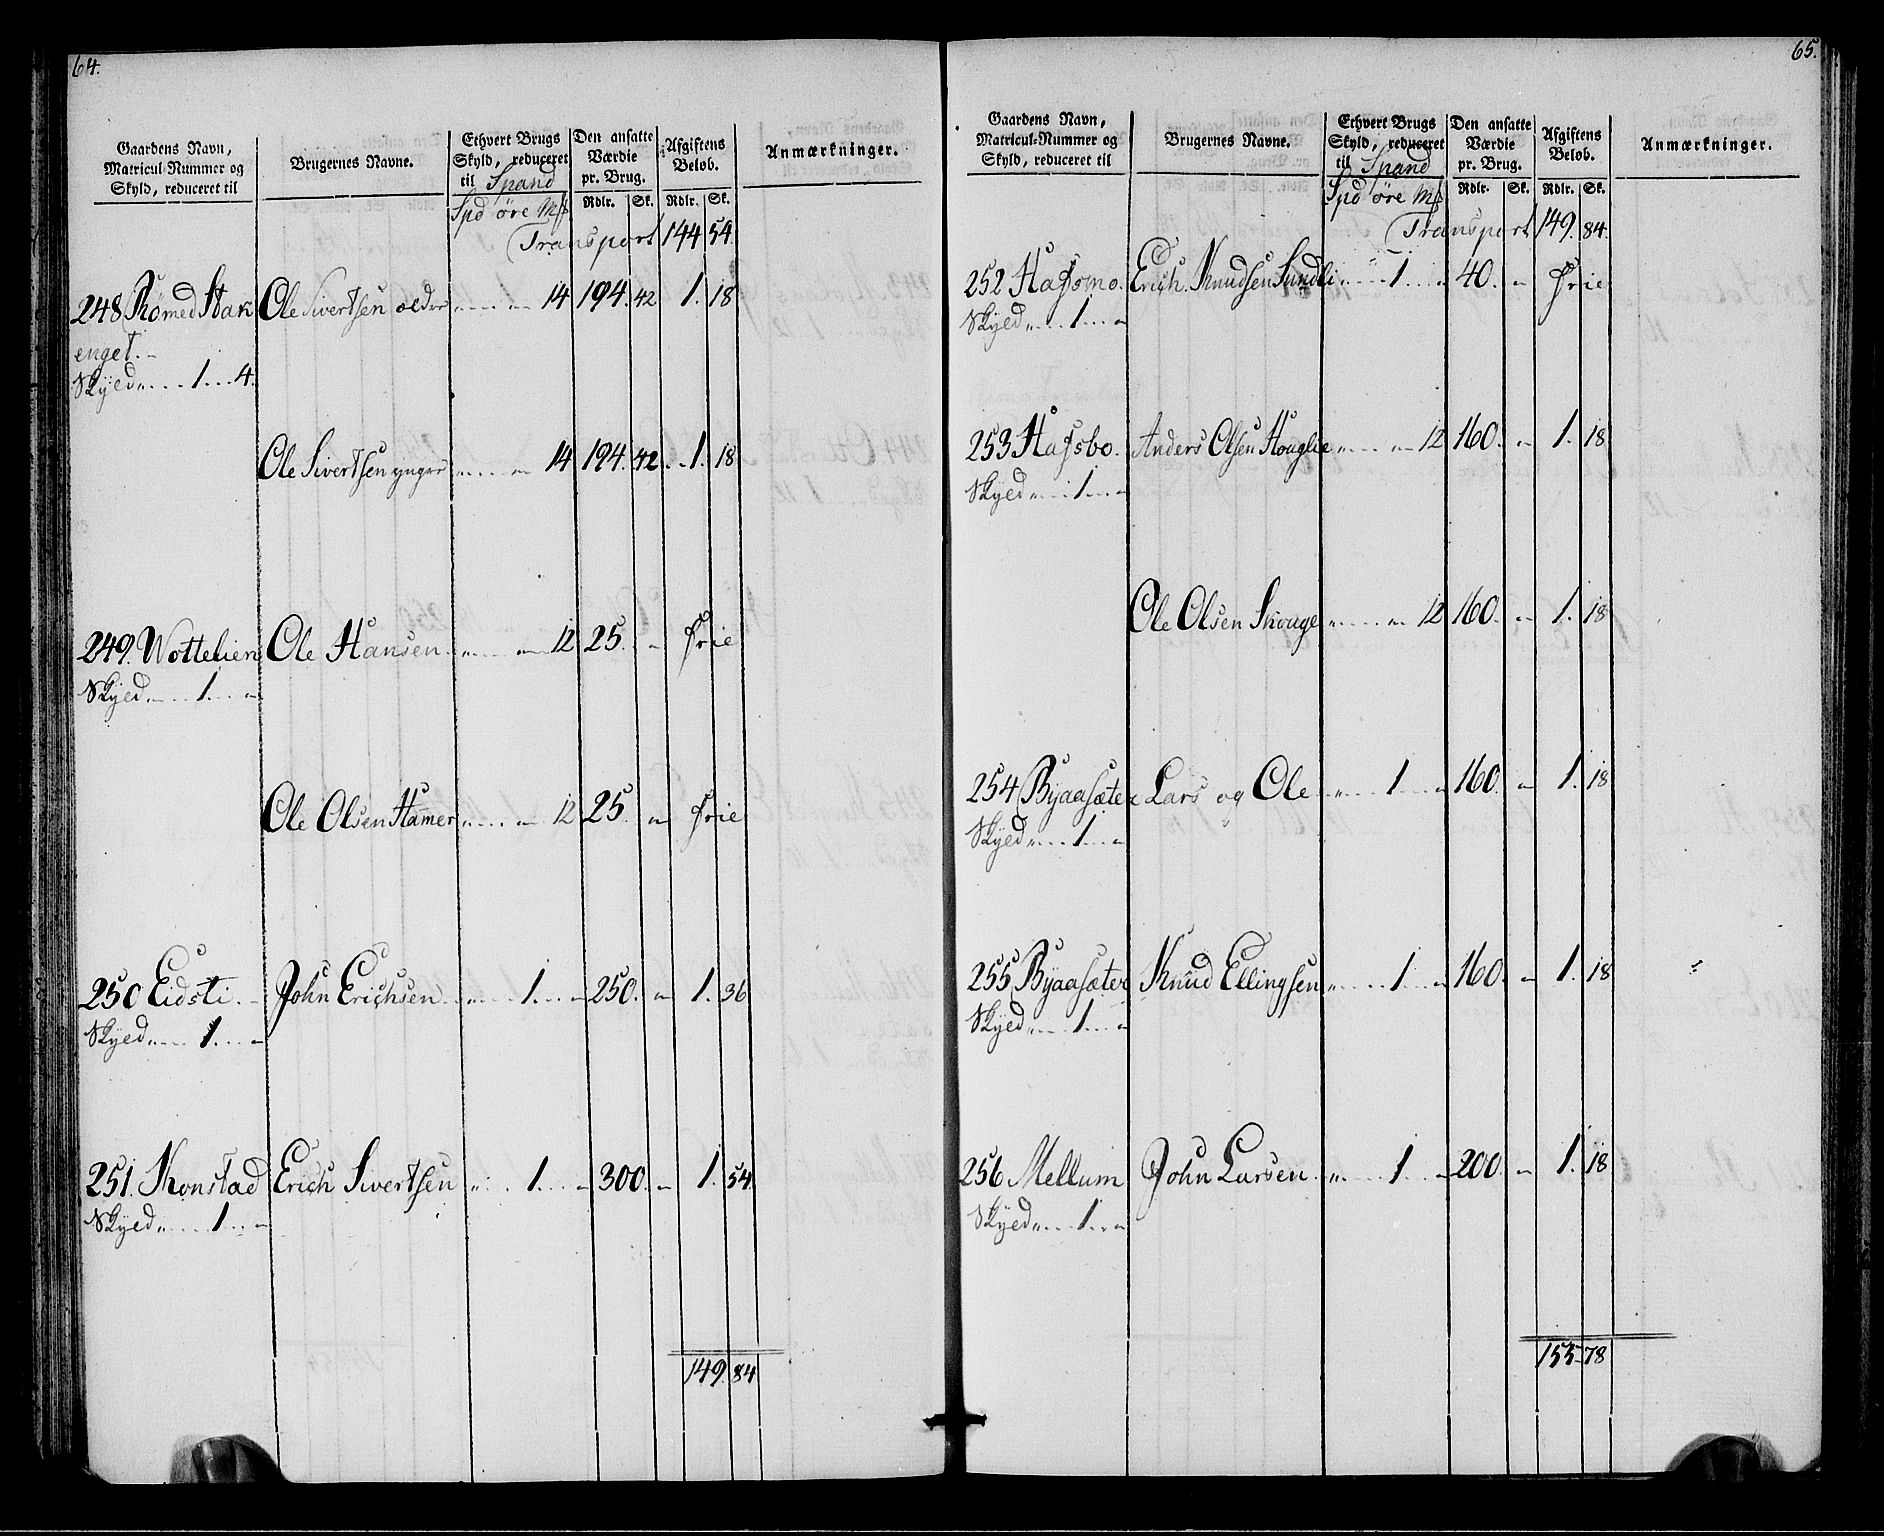 64.
Gaardens Navn, Matricul-Nummer og Skyld, reduceret til
Brugernes Navne.
Ethvert Brugs Skyld, reduceret til Spand
Den ansatte Værdie pr. Brug.
Afgiftens Beløb.
Anmærkninger.
Spd øre Mk
Rdlr. Sk. Rdlr. Sk.
Transport 144 54.
248 Rømed Stak Ole Sivertsen ældre „ „ 14 194. 42 1. 18
enget. -
Skyld „ 1 4.
Ole Sivertsen yngre „ „ 14 194. 42. 1. 18
249. Wottelien Ole Hansen „ „ 12 25. „ Frie
Skyld „ 1 „
Ole Olsen Hamer „ „ 12 25. „ Frie
250 Eidsti. John Erichsen „ 1. „ 250. „ 1. 36
Skyld „ 1. „
251. Konstad Erich Sivertsen „ 1. „ 300. „ 1. 54.
Skyld „ 1 „
149. 84
65.
Gaardens Navn, Matricul-Nummer og Skyld, reduceret til
Brugernes Navne.
Ethvert Brugs Skyld, reduceret til Spand
Den ansatte Værdie pr. Brug.
Afgiftens Beløb.
Anmærkninger.
Spd øre Mk
Rdlr. Sk. Rdlr. Sk.
Transport 149. 84.
252 Hafsmo. Erich Knudsen Sundli „ 1. „ 40. „ Frie
Skyld „ 1. „
253 Hafsbo. Anders Olsen Houglie „ „ 12 160. „ 1. 18
Skyld „ 1. „
Ole Olsen Skouge „ „ 12 160. „ 1. 18
254 Byaasæter Lars og Ole „ 1 „ 160. „ 1. 18
Skyld „ 1. „
255 Byaasæter Knud Ellingsen „ 1. „ 160. „ 1. 18
Skyld „ 1. „
256 Mellum John Larsen „ 1 „ 200. „ 1. 18
Skyld „ 1. „
155 78